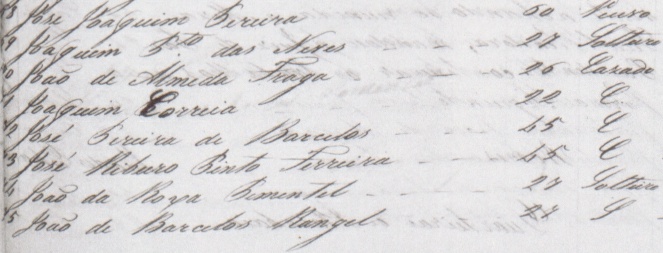 8 José Joaquim Pereira 60 Viuvo
9 Joaquim Pto das Neves 27 Solturo
0 João de Almeda Fraga 26 Cazado
1 Joaquim Correia 22 C
2 José Pereira de Barcelos 45 C
3 José Riburo Pinto Ferreira 45 C
4 João da Roza Pimentel 27 Solturo
5 João de Barcelos Rangel 28 S